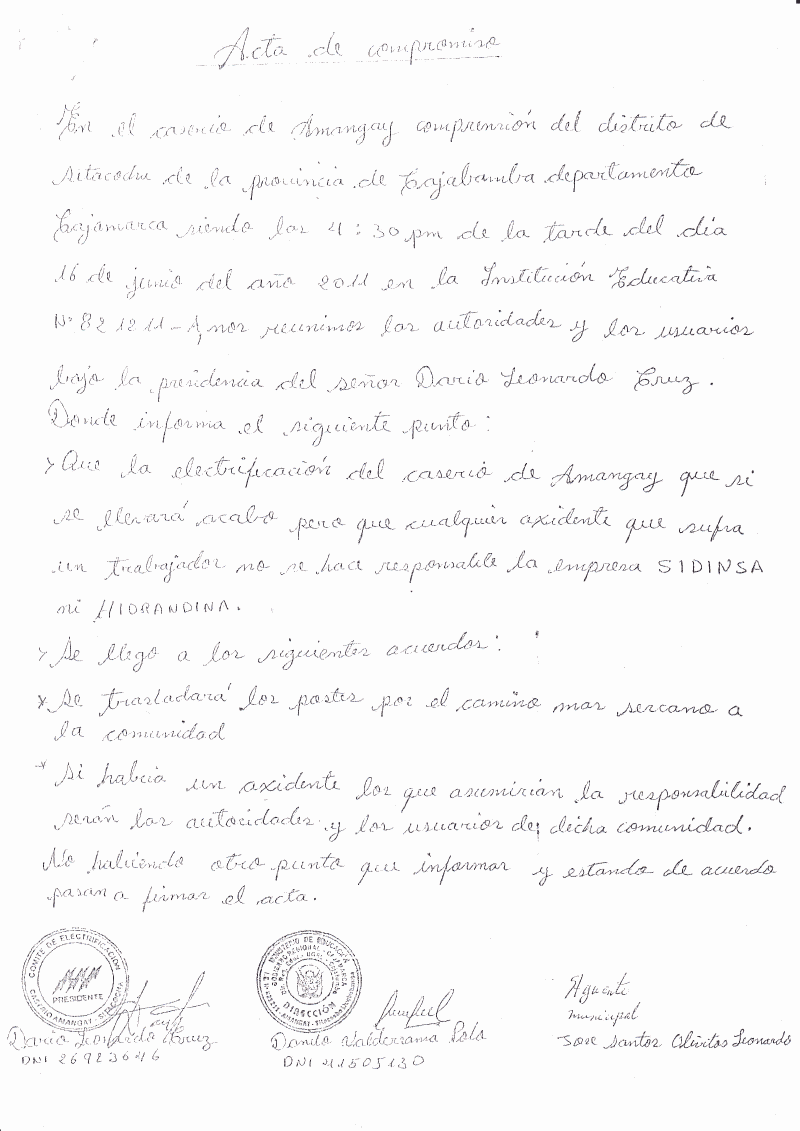 Acta de compromiso
En el caserio de Amangay comprensión del distrito de
Sitacocha de la provincia de Cajabamba departamento
Cajamarca siendo las 4:30 pm de la tarde del día
16 de junio del año 2011 en la Institución Educativa
N° 821211-A, nos reunimos las autoridades y los usuarios
bajo la presidencia del señor Dario Leonardo Cruz.
Donde informa el siguiente punto:
> Que la electrificación del caserio de Amangay que si
se llevará acabo pero que cualquier axidente que sufra
un trabajador no se hace responsable la empresa SIDINSA
ni HIDRANDINA.
> Se llego a los siguientes acuerdos:
* Se trasladará los postes por el camino mas sercano a
la comunidad
* Si habria un axidente los que asumirian la responsabilidad
serán las autoridades y los usuarios de dicha comunidad.
No habiendo otro punto que informar y estando de acuerdo
pasan a firmar el acta.
COMITE DE ELECTRIFICACION
PRESIDENTE
CASERIO AMANGAY - SITACOCHA
MINISTERIO DE EDUCACIÓN
GOBIERNO REGIONAL - CAJAMARCA
DIRECCIÓN
Dario Leonardo Cruz
DNI 26923646
Danilo Valderrama Polo
DNI 41505130
Agente
municipal
Jose Santos Olivitos Leonardo